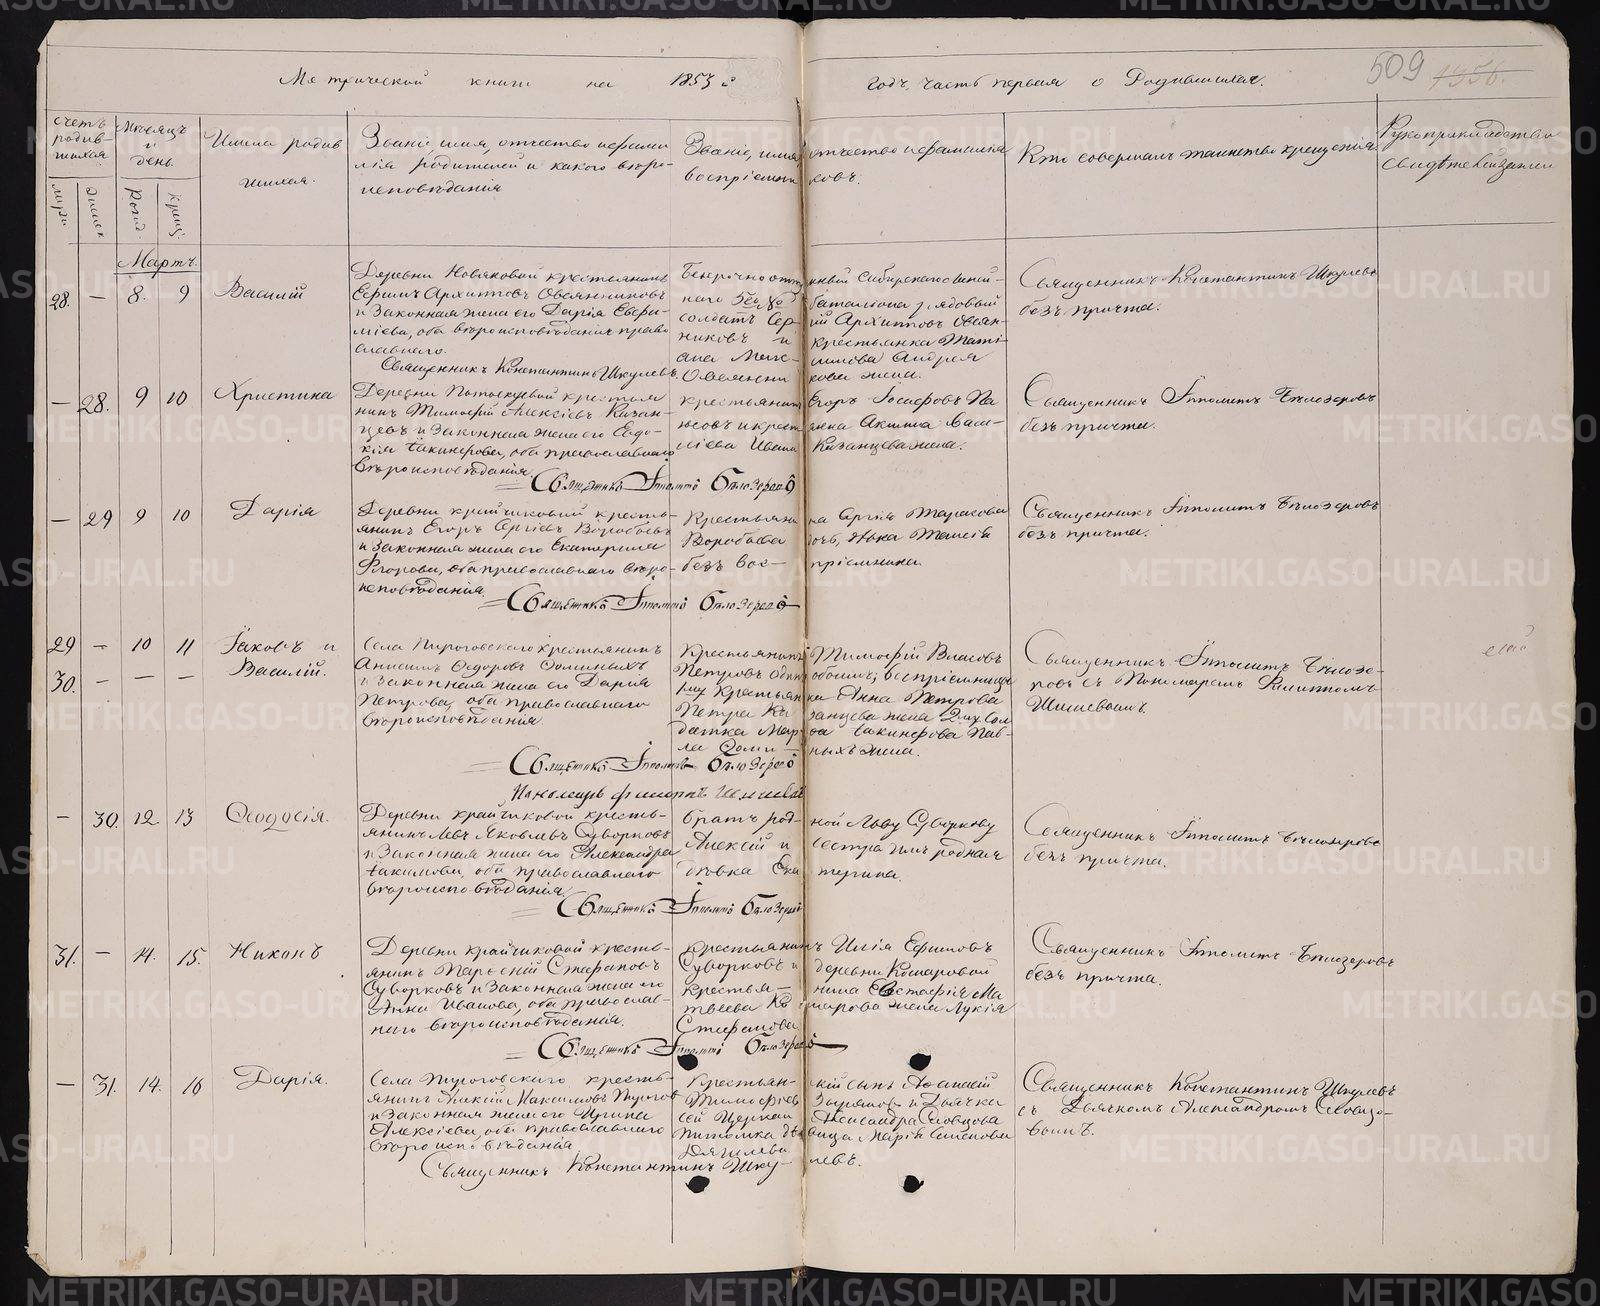 Метрической книги на 1853 й
годъ, часть первая о Родившихся.
509
1956.
счетъ родив-шихся
Мѣсяцъ и день.
Имена родив
шихся.
Званіе, имя, отчество и фами
лія родителей и какого вѣро-
исповѣданія
Званіе, имя, отчество и фамилія
воспріемни ковъ.
Кто совершалъ таинство крещенія.
Рукоприкладство
свидѣтелей записи
муж.
женск
Рожд.
Крещ.
Мартъ.
28. — 8. 9 Василій
Деревни Новяковой крестьянинъ
Ефимъ Архиповъ Овсянниковъ
и Законная жена его Дарія Евфи-
міева, оба вѣроисповѣданія право
славнаго.
Священникъ Константинъ Шкулевъ
Безсрочно отпу кной Сибирскаго Линей-
наго баталіона рядовый
солдатъ Сер гій Архиповъ Овсян-
никовъ и крестьянка Тати-
ана Мак- симова Андрея
Овсянни кова жена.
Священникъ Константинъ Шкулевъ
безъ причта.
— 28. 9 10 Христина
Деревни крестья
нинъ Тимофій Алексіевъ Казан-
цевъ и Законная жена его Евдо-
кія Іакинфова, оба православнаго
вѣроисповѣданія.
Священникъ Ипполитъ Бѣлозеровъ
крестьянинъ Егоръ Іосифовъ Па
Казанцева жена.
Священникъ Ипполитъ Бѣлозеровъ
безъ причта.
— 29 9 10 Дарія
Деревни крайчиковой кресть-
янинъ Егоръ Сргіевъ Воробьевъ
и Законная жена его Екатерина
Егорова, оба православнаго вѣро-
исповѣданія.
Священникъ Ипполитъ Бѣлозеровъ
Крестьяни на Сргія Тарасова
Воробьева дочь, дѣвка Таисія
безъ вос- пріемника.
Священникъ Ипполитъ Бѣлозеровъ
безъ причта.
29 — 10 11 Іаковъ и
30. — — — Василій.
Села Пироговскаго крестьянинъ
Анисимъ Ѳедоровъ Ѳоминыхъ
и Законная жена его Дарія
Петрова, оба православнаго
вѣроисповѣданія
Священникъ Ипполитъ Бѣлозеровъ
Пономарь Филиппъ Шишевъ
Крестьянинъ Тимофій Власовъ
ка Анна Петрова
Петра Ка занцева жена
датка Мар ѳа Іакинфова Пав-
ла Ѳоми- ныхъ жена.
Священникъ Ипполитъ Бѣлозе-
ровъ съ Пономаремъ Филиппомъ
Шишевымъ.
— 30. 12 13 Ѳеодосія.
Деревни крайчиковой кресть-
янинъ Левъ Яковлевъ Суворковъ
и Законная жена его Александра
Іакимова, оба православнаго
вѣроисповѣданія
Священникъ Ипполитъ Бѣлозеровъ
братъ род- ной Льву Суворкову
Алексій и сестра имъ родная
дѣвка Ека терина.
Священникъ Ипполитъ Бѣлозеровъ
безъ причта.
31. — 14. 15. Никонъ
Деревни крайчиковой кресть-
янинъ Парѳеній Стефановъ
Суворковъ и Законная жена его
Анна Иванова, оба православ-
наго вѣроисповѣданія.
Священникъ Ипполитъ Бѣлозеровъ
крестьянинъ Илія Ефимовъ
Суворковъ и деревни Комаровой
крестья- нина Евстафія Ма
твеева Ко марова жена Лукія
Стефанова
Священникъ Ипполитъ Бѣлозеровъ
безъ причта.
— 31. 14. 16 Дарія.
Села Пироговскаго кресть-
янинъ Алексій Максимовъ Пирогов
и Законная жена его Ирина
Алексіева, оба православнаго
вѣроисповѣданія
Священникъ Константинъ Шку- левъ.
Крестьян- скій сынъ Аѳанасій
Тимофіев Зырянов и Дьячка
сей Церкви Александра Словцова
питомка дѣ вица Марія Семенова
Дягилева
Священникъ Константинъ Шкулевъ
съ Дьячкомъ Александромъ Словцо-
вымъ.
METRIKI.GASO-URAL.RU